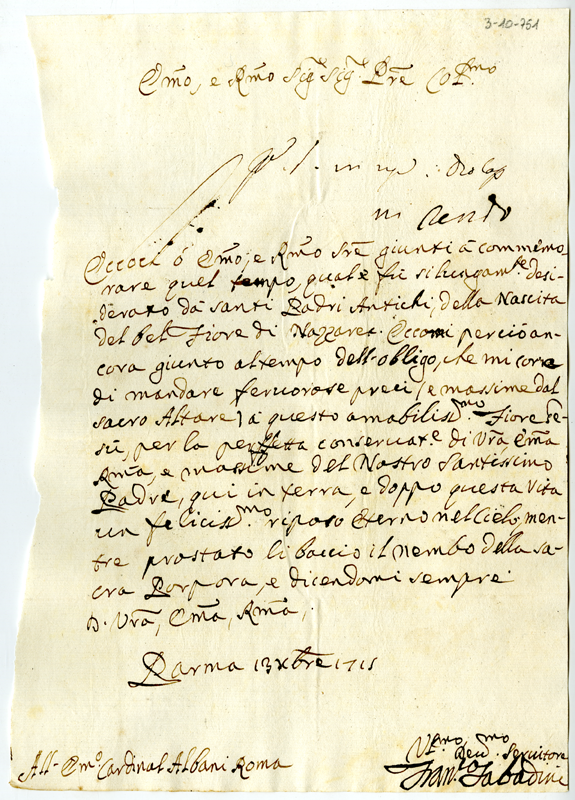 3-10-751
Em̃o, e Rm̃o Sig.r Sig.r Prẽ Col.mo
mi rendo
Eccoci ò Em̃o, e Rm̃o Prẽ giunti à commemo-
rare quel tempo, quale fù si lungam.te desi-
derato dà santi Padri Antichi, della Nascita
del bel Fiore di Nazzaret. Eccomi perciò an-
cora giunto al tempo dell'obligo, che mi corre
di mandare feruorose preci (e massime dal
sacro Altare) à questo amabiliss.mo Fiore Ge-
sù, per la perffetta conseruat.e di Vrã Em̃a
Rm̃a, e massime del Nostro Santissimo
Padre, qui in terra, e doppo questa Vita
un feliciss.mo riposo Eterno nel Cielo, men-
tre prostato li baccio il nembo della sa-
cra Porpora, e dicendomi sempre
D. Vrã, Em̃a, Rm̃a,
Parma 13 Xbre 1715
All' Em̃o Cardinal Albani Roma
V.mo Deu.mo Seruitore
Fran.co Sabadini